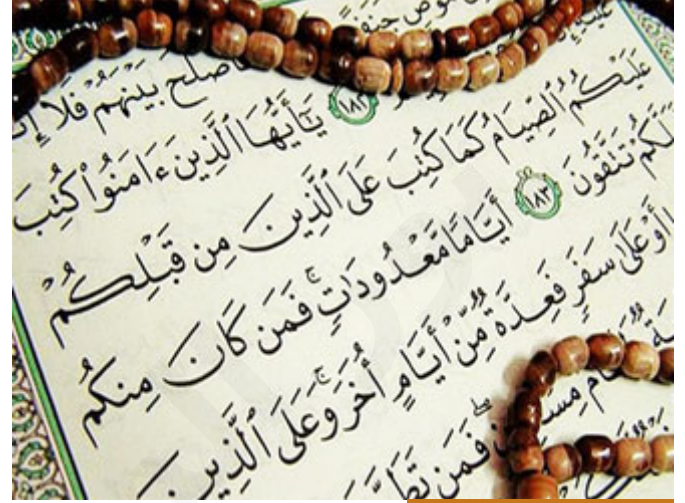 مُّوصٍ جَنَفًا
فَأَصْلَحَ بَيْنَهُمْ فَلَا إِثْمَ عَلَيْهِ
١٨٢ يَٰٓأَيُّهَا ٱلَّذِينَ ءَامَنُوا۟ كُتِبَ
عَلَيْكُمُ ٱلصِّيَامُ كَمَا كُتِبَ عَلَى ٱلَّذِينَ مِن قَبْلِكُمْ
لَعَلَّكُمْ تَتَّقُونَ ١٨٣ أَيَّامًا مَّعْدُودَٰتٍ ۚ فَمَن كَانَ مِنكُم
أَوْ عَلَىٰ سَفَرٍ فَعِدَّةٌ مِّنْ أَيَّامٍ أُخَرَ ۚ وَعَلَى ٱلَّذِينَ
طَعَامُ مِسْكِينٍ ۖ فَمَن